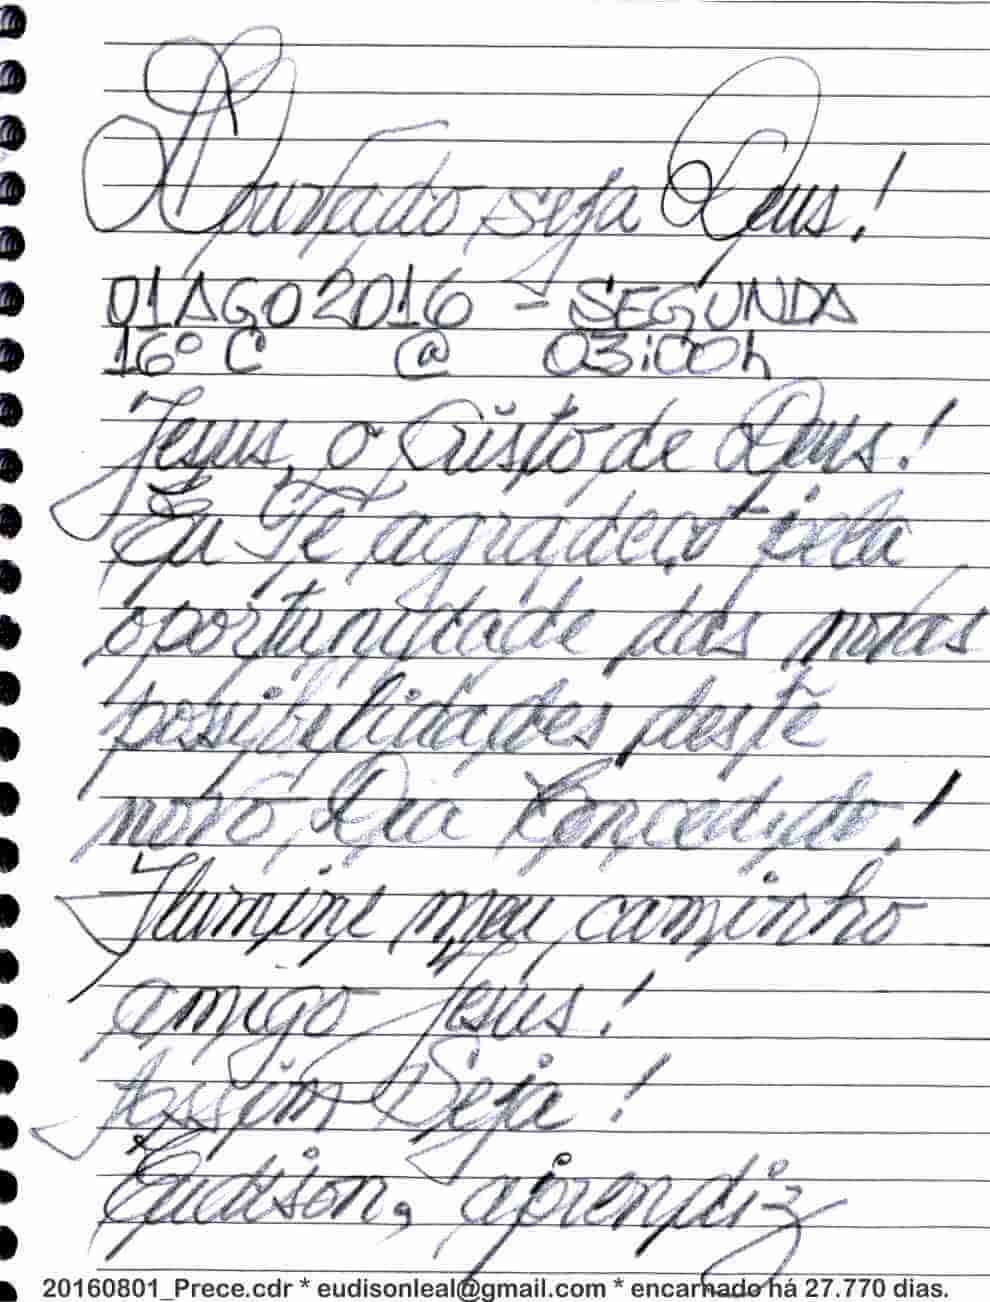 Apurado seja Deus!
01 AGO 2016 - SEGUNDA
16º C @ 03:00h
Jesus, o Cristo de Deus!
Eu Te agradeço pela
oportunidade das novas
possibilidades deste
novo Dia Concedido!
Ilumine meu caminho
amigo Jesus!
Assim Seja!
Eudison, aprendiz
20160801_Prece.cdr * eudisonleal@gmail.com * encarnado há 27.770 dias.